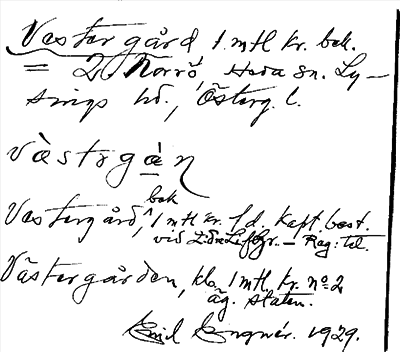 Västergård 1 mtl kr. bok.
= 2 Norrö, Heda sn. Ly-
sings hd., Österg. l.
vàstrgàṇ
bok
Västergård, ^ 1 mtl kr. f.d. Kapt. bost.
vid L:dr. Lifgr. — Reg: tel.
Västergården, kla. 1 mtl. kr. nº 2
äg. Staten.
Emil Engnér. 1929.